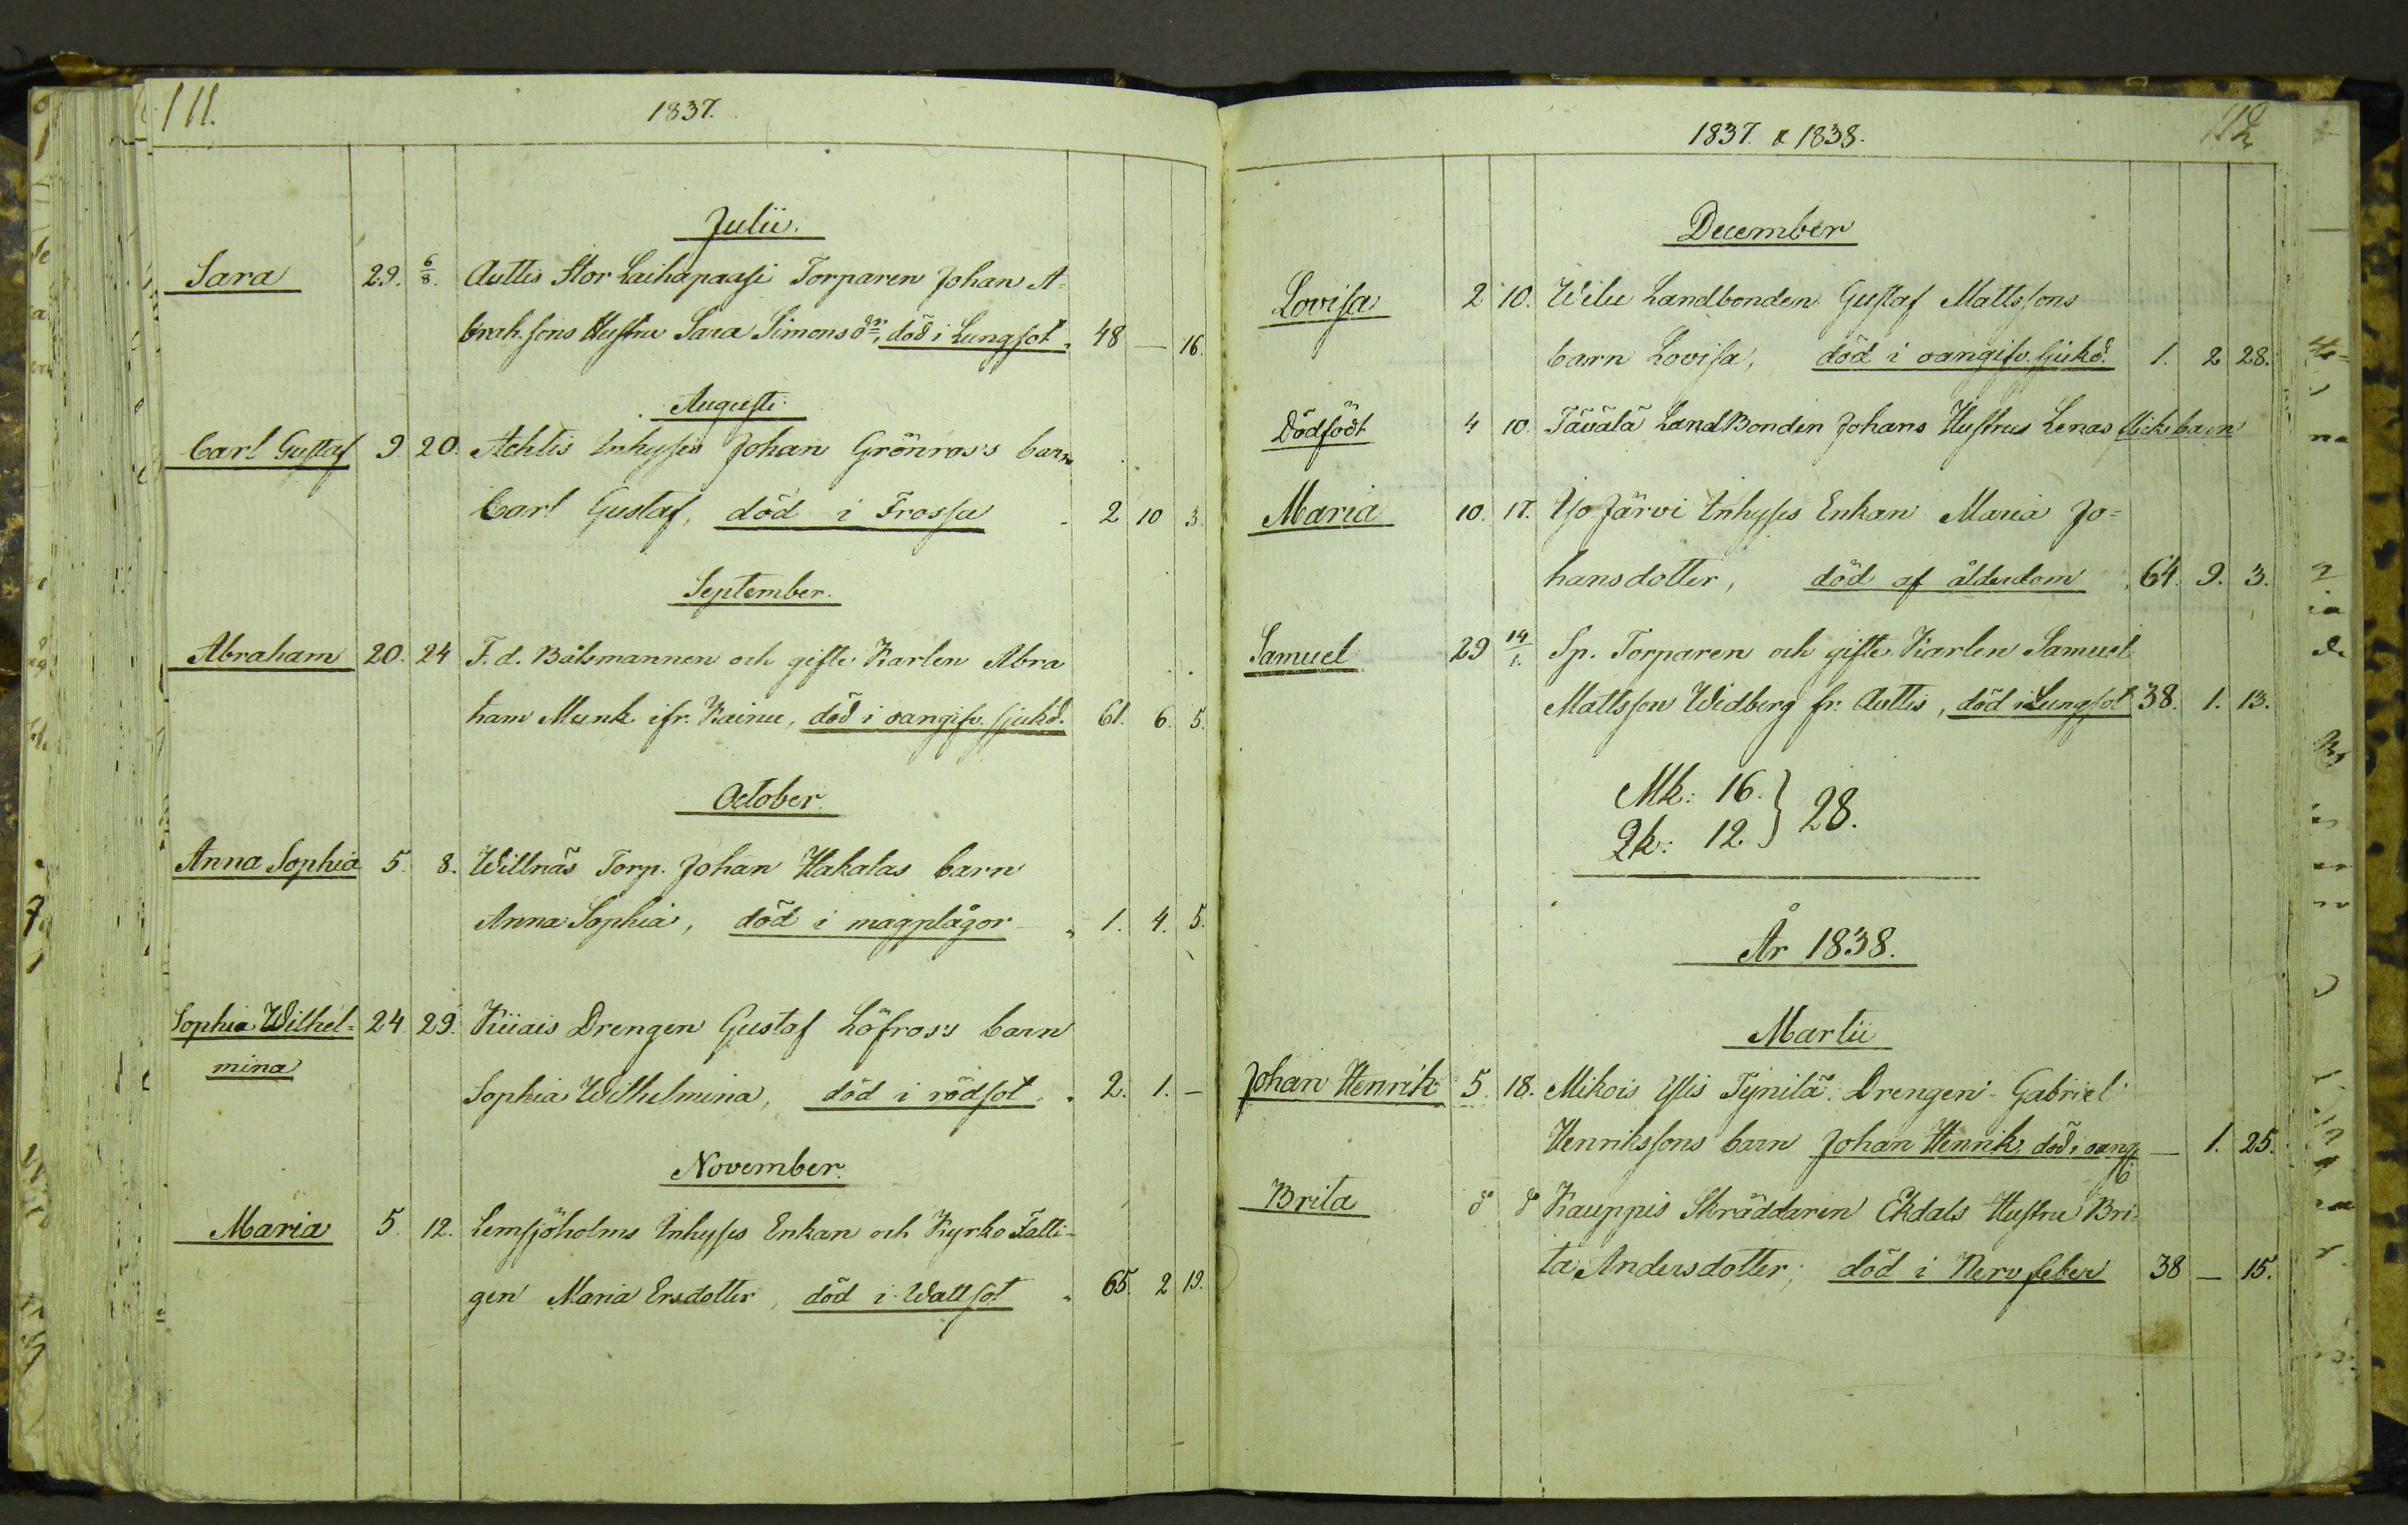 111.
1837.
Julii.
Sara 29. 6/8. Auttis Stor Laihapaasi Torparen Johan A-
brah.sons Hustru Sara Simonsdr, död i Lungsot. 48 — 16.
Augusti.
Carl Gustaf 9. 20. Achtis Inhyses Johan Grönros's barn
Carl Gustaf, död i Frossa 2 10 3.
September.
Abraham 20. 24 F.d. Båtsmannen och gifte Karlen Abra
ham Munk ifr. Kainu, död i oangifv. sjukd. 61. 6. 5.
October.
Anna Sophia 5. 8. Willnäs Torp. Johan Hakalas barn
Anna Sophia, död i magplågor 1. 4. 5.
Sophia Wilhel= 24 29. Kiiais Drengen Gustaf Löfros's barn
mina
Sophia Wilhelmina, död i rödsot. 2. 1. —
November.
Maria 5. 12. Lemsjöholms Inhyses Enkan och Kyrko Fatti-
gen Maria Ersdotter, död i Wattsot 65. 2 19.
112
1837. & 1838.
December
Lovisa 2 10. Wilu Landbonden Gustaf Mattssons
barn Lovisa, död i oangifv. sjukd. 1. 2 28.
Dödfödt 4 10. Tävälä LandBonden Johans Hustrus Lenas flickebarn
Maria 10. 17. Iso Järvi Inhyses Enkan Maria Jo=
hansdotter, död af ålderdom 64. 9. 3.
Samuel 29 14/1. Sp. Torparen och gifte Karlen Samuel
Mattsson Widberg fr. Auttis, död i Lungsot 38. 1. 13.
Mk: 16. } 28.
Qk: 12
År 1838.
Martii
Johan Henrik 5. 18. Mikois Ylis Tynilä Drengen Gabriel
Henrikssons barn Johan Henrik, död i oang. — 1. 25.
Brita do do Kauppis Skräddaren Ekdals Hustru Bri-
ta Andersdotter; död i Nervfeber 38 — 15.